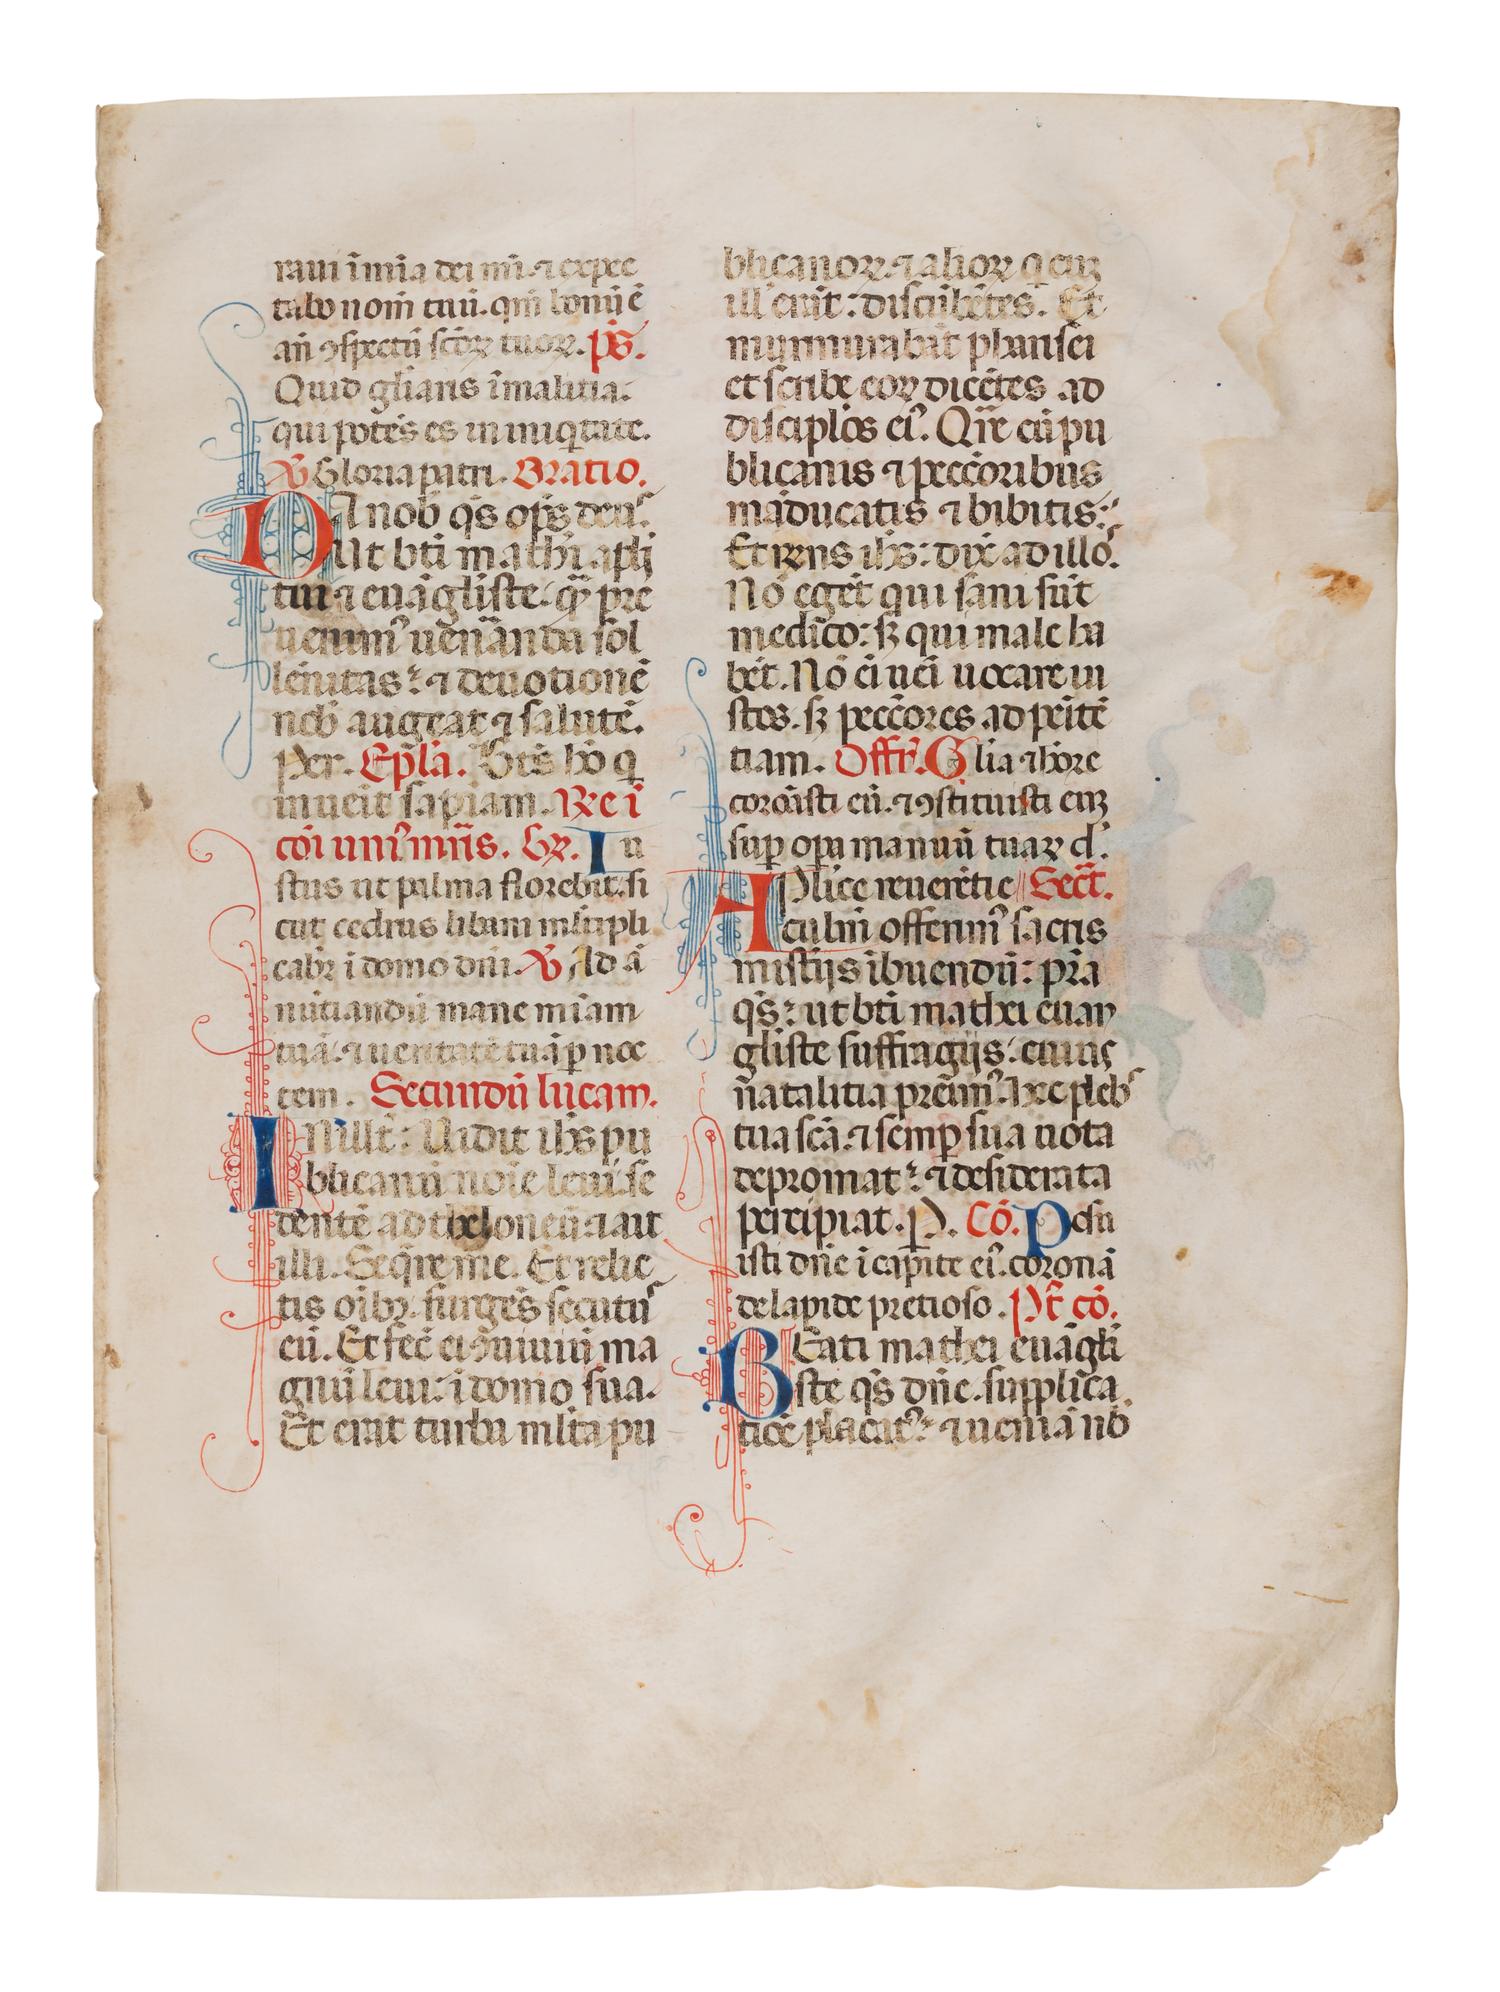 raui ĩ mĩa dei mĩ. ⁊ expec
tabo nom̃ tuũ. qm̃ bonũ ẽ
añ ꝯspectũ sc̃oꝝ tuoꝝ. p̃s.
Quid gl̃iaris ĩ malitia:
qui potẽs es in iniq̃tate.
℣ Gloria patri. Oratio.
DA nob̃ q̃s op̃s deus̓.
Ut bt̃i mathi apl̃i
tui ⁊ euãgliste: q̃ pre
uenim᷒ uenãnda sol
lẽnitas: ⁊ deuotionẽ
nob̃ augeat ⁊ salutẽ.
Per. Ep̃la. Bt̃s hõ q̃
inueit sapiam. Re ĩ
cõi uni᷒ mr̃is. Gr̃. Iu
stus ut palma florebit. si
cut cedrus libani ml̃tipli
cabr̃ ĩ domo dñi. ℣ Ad ã
nũtiandũ mane mĩam
tuã. ⁊ ueritatẽ tuã ꝑ noc
tem. Secundũ lucam.
IN ill̃t: Uidit ihs̃ pu
blicanũ noĩe leui. se
dentẽ ad theloneũ. ⁊ ait
illi. Seq̃re me. Et relic
tis oĩbꝫ. surgẽs secutus̓
eũ. Et fec̃ ei ꝯuiuiũ ma
gnũ leui: ĩ domo sua.
Et erat turba ml̃ta pu
blicanoꝝ. ⁊ alioꝝ q̃ cuꝫ
ill̓ erãt: discũbẽtes. Et
murmurabãt pharisei
et scribe eoꝝ dicẽtes ad
disciplõs ei᷒. Qr̃e cũ pu
blicanis ⁊ pecc̃oribus
mãducatis ⁊ bibitis:
Et rñs ihs̃: dix̃ ad illos̓.
Nõ egẽt qui sani sũt
medico: sꝫ qui male ha
bẽt. Nõ ẽi uei uocare iu
stos. sꝫ pecc̃ores ad peitẽ
tiam. Offr̃. Glia ⁊ hõre
coroãsti eũ. ⁊ ꝯstituisti euꝫ
suꝑ opa manuũ tuaꝝ d̃.
APl̃ice reuerẽtie Secr̃t.
culm̃ offerim᷒ sacris
mistijs ĩbuendũ: pr̃a
q̃s: ut bt̃i mathei euan
gliste suffragijs: cuius
natalitia prẽim᷒. hec plebs̓
tua sc̃a. ⁊ semꝑ sua uota
depromat: ⁊ desiderata
ꝑcipiat. P̃. Cõ. Posu
isti dñe ĩ capite ei᷒. coronã
de lapide pretioso. Pt̃ cõ.
BEati mathei euãgl̃i
ste q̃s dñe. supplica
tiõe placar̃: ⁊ ueniã nob̃